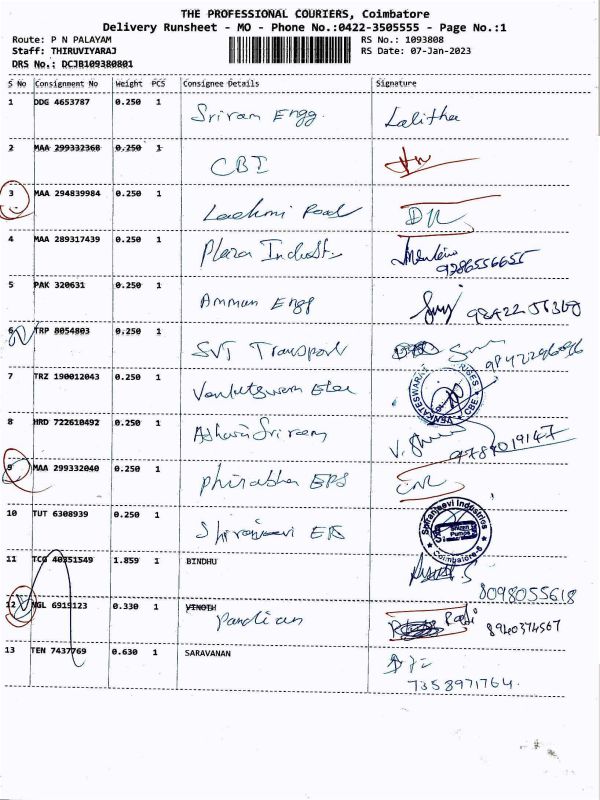 THE PROFESSIONAL COURIERS, Coimbatore
Delivery Runsheet - MO - Phone No.:0422-3505555 - Page No.:1
Route: P N PALAYAM RS No.: 1093808
Staff: THIRUVIYARAJ RS Date: 07-Jan-2023
DRS No.: DCJB109380801
S No Consignment No Weight PCS Consignee Details Signature
1 DDG 4653787 0.250 1 Sriram Engg. Lalitha
2 MAA 299332368 0.250 1 CBI
3 MAA 294839984 0.250 1 Laxhmi Road DR
4 MAA 289317439 0.250 1 Plaza Indust.
9786556655
5 PAK 320631 0.250 1 Amman Engg
6 TRP 8054803 0.250 1 SVT Transport
7 TRZ 190012043 0.250 1
8 HRD 722610492 0.250 1 Ashwin Sriram
9789019147
9 MAA 299332040 0.250 1 EPS
10 TUT 6308939 0.250 1
Shiranjeevi Industries
Coimbatore-6
11 TCG 40351549 1.859 1 BINDHU
8098055618
12 NGL 6919123 0.330 1 VINOTH
Pandian 8940374567
13 TEN 7437769 0.630 1 SARAVANAN
7358971764.